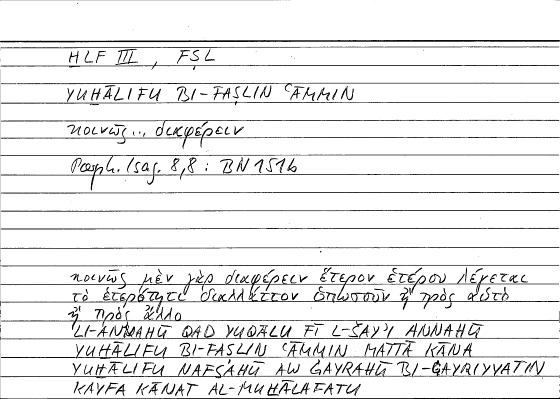 ḪLF III, FṢL
YUḪĀLIFU BI-FAṢLIN ʿĀMMIN
κοινῶς... διαφέρειν
Porph. Isag. 8,8 : BN 151b
κοινῶς μὲν γὰρ διαφέρειν ἕτερον ἑτέρου λέγεται
τὸ ἑτερότητι διαλλάττον ὁπωσοῦν ἢ πρὸς αὑτὸ
ἢ πρὸς ἄλλο
LI-ANNAHŪ QAD YUQĀLU FĪ L-ŠAYʾI ANNAHŪ
YUḪĀLIFU BI-FAṢLIN ʿĀMMIN MATTĀ KĀNA
YUḪĀLIFU NAFSAHŪ AW ĠAYRAHŪ BI-ĠAYRIYYATIN
KAYFA KĀNAT AL-MUḪĀLAFATU